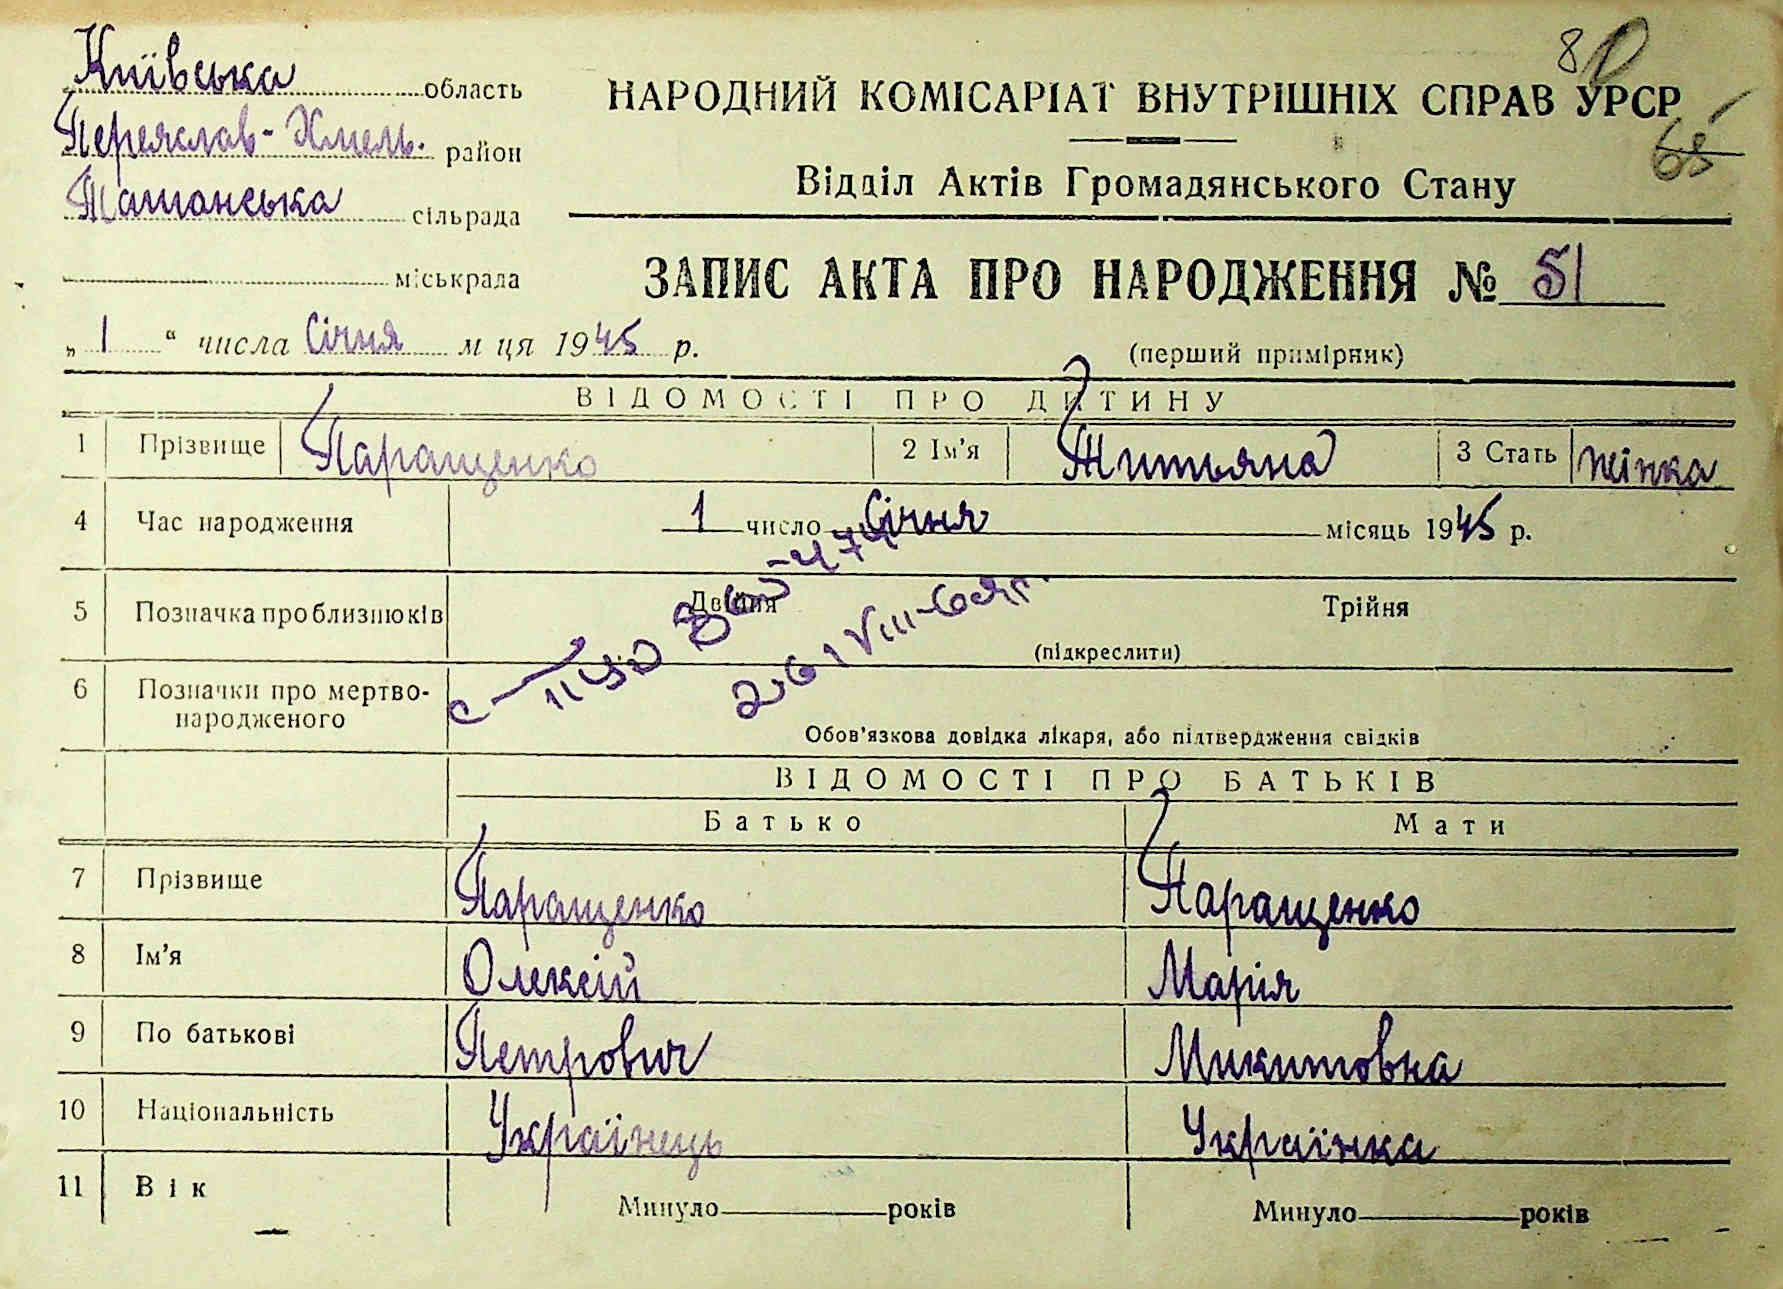 Київська область
Переяслав-Хмель. район
Ташанська сільрада
міськрада
80
65
НАРОДНИЙ КОМІСАРІАТ ВНУТРІШНІХ СПРАВ УРСР
Відділ Актів Громадянського Стану
ЗАПИС АКТА ПРО НАРОДЖЕННЯ № 51
„ 1 “ числа Січня м ця 1945 р.
(перший примірник)
ВІДОМОСТІ ПРО ДИТИНУ
1 Прізвище Паращенко 2 Ім'я Титьяна 3 Стать жінка
4 Час народження 1 число Січня місяць 1945 р.
5 Позначка про близнюків Двійня Трійня
(підкреслити)
6 Позначки про мертво-
народженого
Обов'язкова довідка лікаря, або підтвердження свідків
ВІДОМОСТІ ПРО БАТЬКІВ
Батько Мати
7 Прізвище Паращенко Паращенко
8 Ім'я Олексій Марія
9 По батькові Петрович Микитовна
10 Національність Українець Українка
11 Вік Минуло років Минуло років